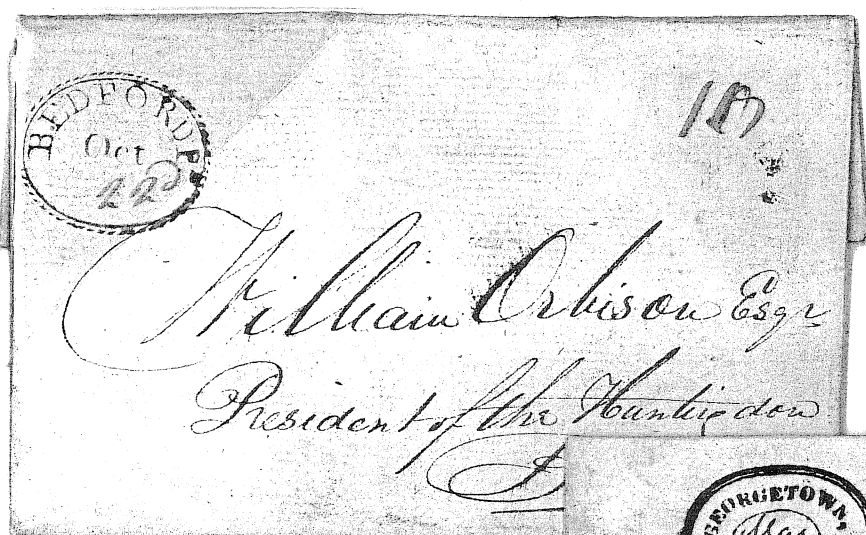 BEDFORD P
Oct
22d
William Orbison Esqr
President of the Huntigdon
GEORGETOWN,